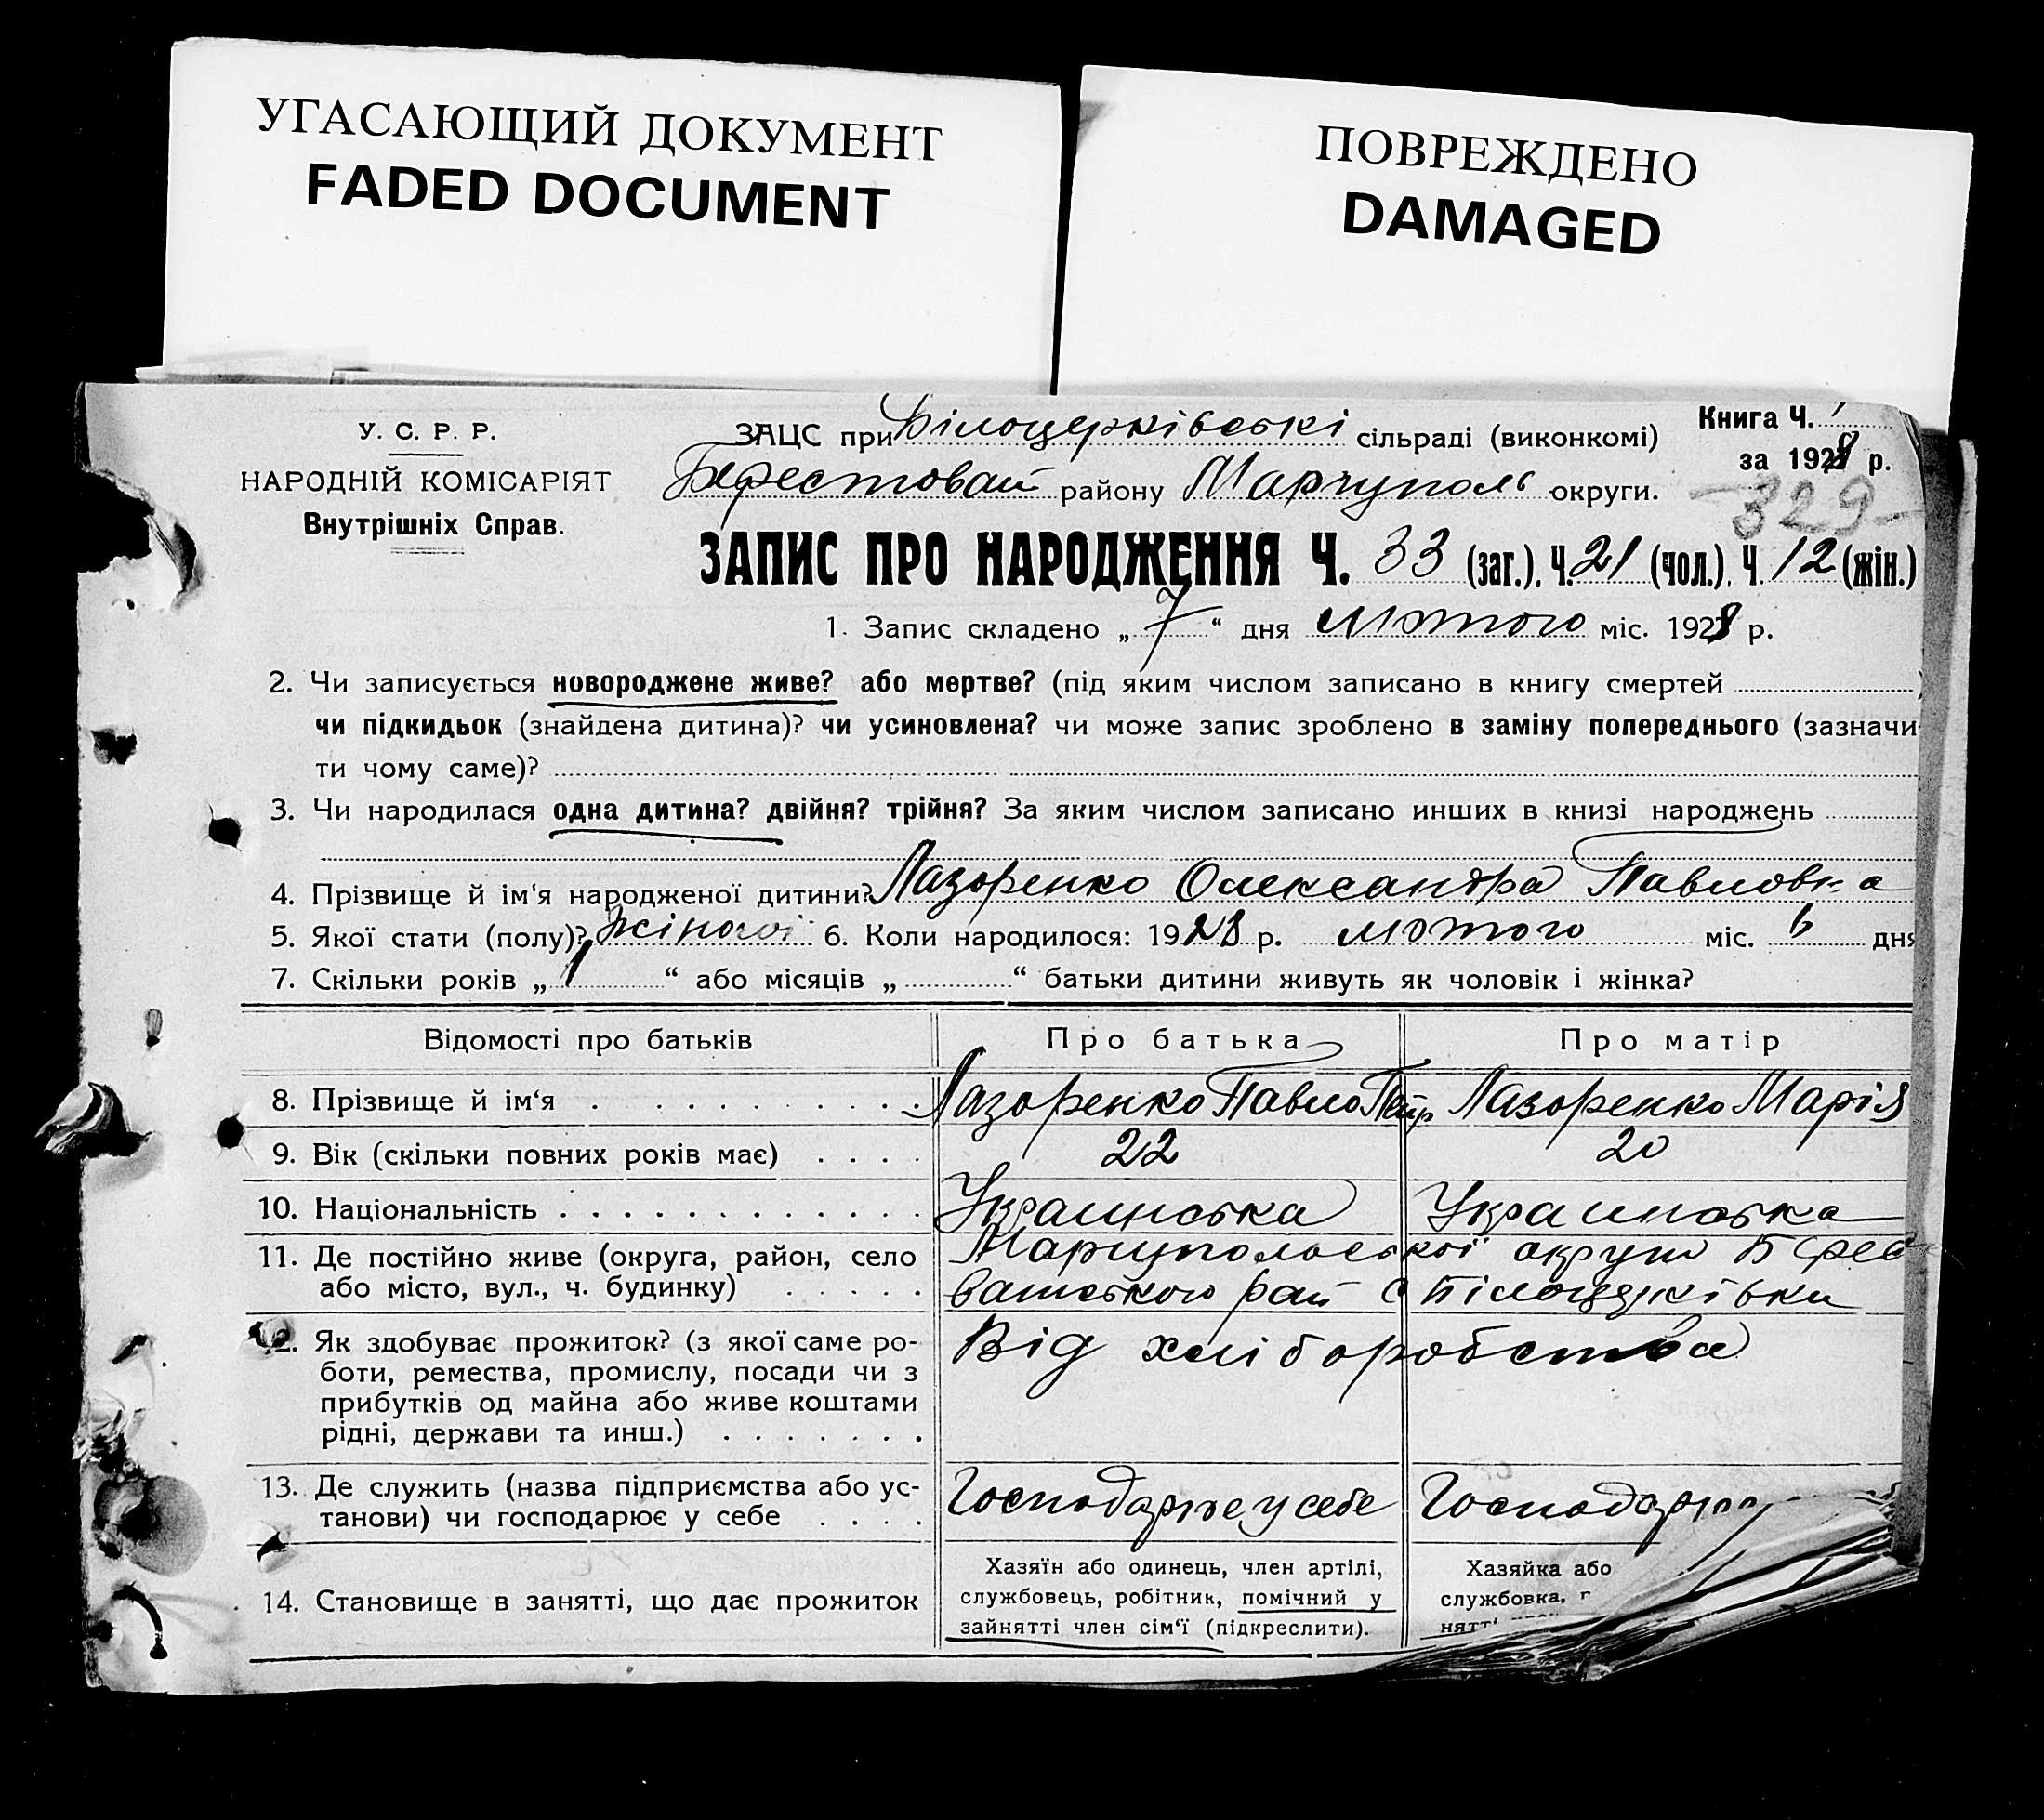 УГАСАЮЩИЙ ДОКУМЕНТ
FADED DOCUMENT
ПОВРЕЖДЕНО
DAMAGED
У. С. Р. Р.
НАРОДНІЙ КОМІСАРІЯТ
Внутрішніх Справ.
ЗАЦС при Білоцерківські сільраді (виконкомі)
Книга Ч. 1
за 1928 р.
Берестовай району Маріуполь округи.
329
ЗАПИС ПРО НАРОДЖЕННЯ Ч. 33 (заг.). Ч. 21 (чол.). Ч. 12 (жін.)
1. Запис складено „ 7 “ дня лютого міс. 1928 р.
2. Чи записується новороджене живе? або мертве? (під яким числом записано в книгу смертей )
чи підкидьок (знайдена дитина)? чи усиновлена? чи може запис зроблено в заміну попереднього (зазначи-
ти чому саме)?
3. Чи народилася одна дитина? двійня? трійня? За яким числом записано инших в книзі народжень
4. Прізвище й ім‘я народженої дитини? Лазоренко Олександра Павловна
5. Якої стати (полу)? жіночої 6. Коли народилося: 1928 р. лютого міс. 6 дня
7. Скільки років „ 1 “ або місяців „ “ батьки дитини живуть як чоловік і жінка?
Відомості про батьків Про батька Про матір
8. Прізвище й ім‘я Лазоренко Павло Петр Лазоренко Марія
9. Вік (скільки повних років має) 22 20
10. Національність Украинська Украинська
11. Де постійно живе (округа, район, село Маріупольської округи Берес
або місто, вул., ч. будинку) рай с Білоцерківки
12. Як здобуває прожиток? (з якої саме ро- Від хліборобства
боти, ремества, промислу, посади чи з
прибутків од майна або живе коштами
рідні, держави та инш.)
13. Де служить (назва підприємства або ус- Господарює у себе Господарю
танови) чи господарює у себе
14. Становище в занятті, що дає прожиток
Хазяїн або одинець, член артілі,
службовець, робітник, помічний у
зайнятті член сім‘ї (підкреслити).
Хазяйка або
службовка, г
нятті